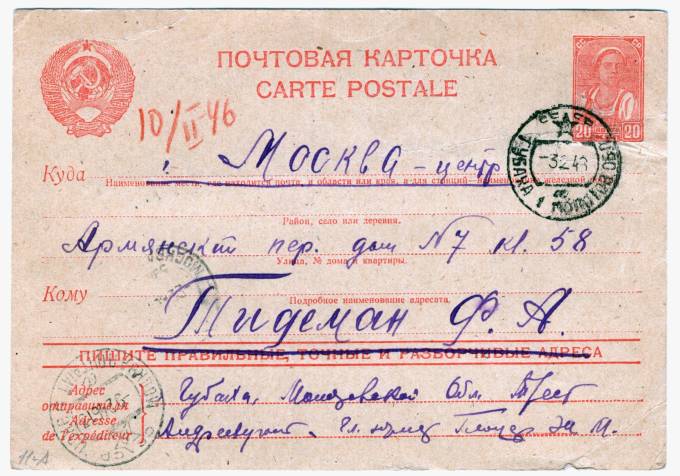 ПОЧТОВАЯ КАРТОЧКА
CARTE POSTALE
СС СР
20 20
10/II 46
Куда г. Москва - центр
Наименование места, где находится почта, и области или края, а для станций - наименование железной
Район, село или деревня.
Армянский пер. дом N7 кв. 58
Улица, № дома и квартиры.
Кому
Подробное наименование адресата.
Тидеман Ф. А.
ПИШИТЕ ПРАВИЛЬНЫЕ, ТОЧНЫЕ И РАЗБОРЧИВЫЕ АДРЕСА
Адрес отправителя
Adresse de l'expéditeur
Губаха, Обл. Трест
М.
11-А